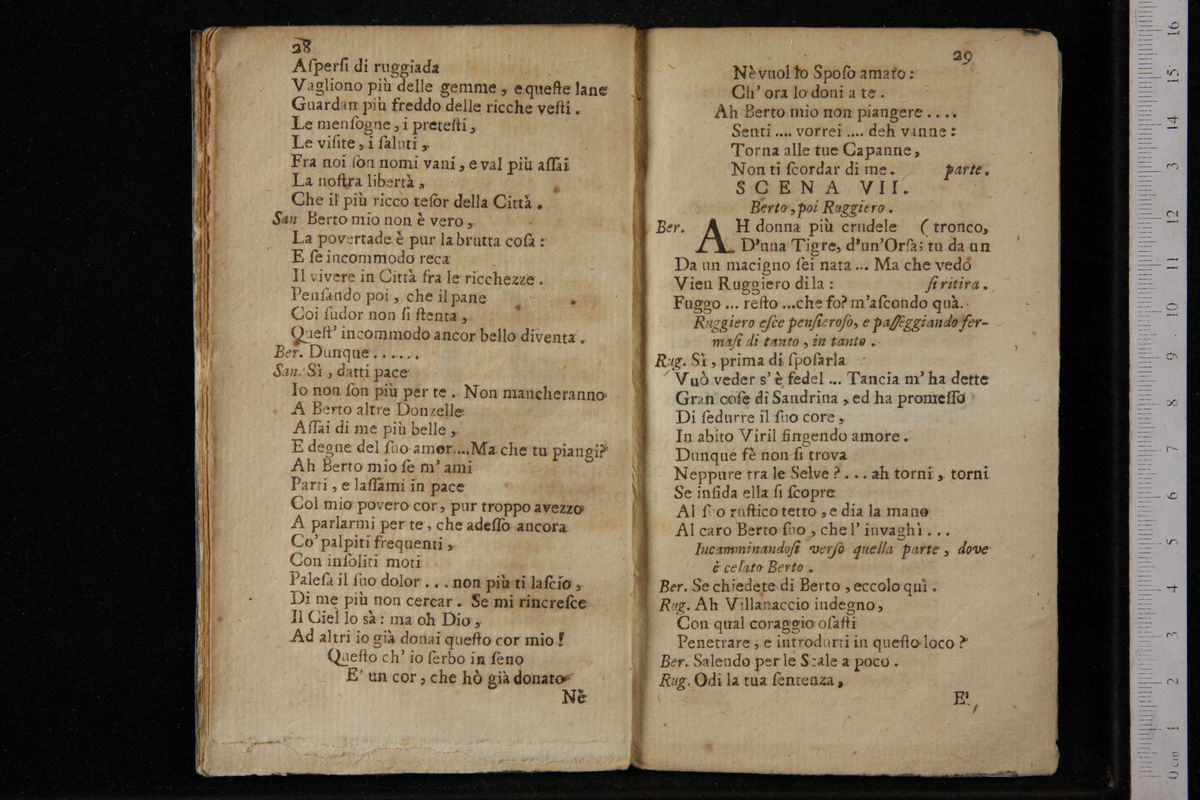 28
Aſperſi di ruggiada
Vagliono più delle gemme, e queſte lane
Guardan più freddo delle ricche veſti.
Le menſogne, i preteſti,
Le viſite, i ſaluti,
Fra noi ſon nomi vani, e val più aſſai
La noſtra libertà,
Che il più ricco teſor della Città.
San Berto mio non è vero,
La povertade è pur la brutta coſa:
E ſe incommodo reca
Il vivere in Città fra le ricchezze.
Penſando poi, che il pane
Coi ſudor non ſi ſtenta,
Queſt' incommodo ancor bello diventa.
Ber. Dunque......
San. Sì, datti pace
Io non ſon più per te. Non mancheranno
A Berto altre Donzelle
Aſſai di me più belle,
E degne del ſuo amor....Ma che tu piangi?
Ah Berto mio ſe m' ami
Parti, e laſſami in pace
Col mio povero cor, pur troppo avezzo
A parlarmi per te, che adeſſo ancora
Co' palpiti frequenti,
Con inſoliti moti
Paleſa il ſuo dolor... non più ti laſcio,
Di me più non cercar. Se mi rincreſce
Il Ciel lo sà: ma oh Dio,
Ad altri io già donai queſto cor mio!
Queſto ch' io ſerbo in ſeno
E' un cor, che hò già donato
Nè
29
Nè vuol lo Spoſo amato:
Ch' ora lo doni a te.
Ah Berto mio non piangere....
Senti.... vorrei.... deh vanne:
Torna alle tue Capanne,
Non ti ſcordar di me. parte.
SCENA VII.
Berto, poi Ruggiero.
Ber. AH donna più crudele (tronco,
D'una Tigre, d'un'Orſa; tu da un
Da un macigno ſei nata... Ma che vedo
Vien Ruggiero di la: ſi ritira.
Fuggo... reſto...che fo? m'aſcondo quà.
Ruggiero eſce penſieroſo, e paſſeggiando fer-
maſi di tanto, in tanto.
Rug. Sì, prima di ſpoſarla
Vuò veder s' è fedel... Tancia m' ha dette
Gran coſe di Sandrina, ed ha promeſſo
Di ſedurre il ſuo core,
In abito Viril fingendo amore.
Dunque fè non ſi trova
Neppure tra le Selve?... ah torni, torni
Se infida ella ſi ſcopre
Al ſ o ruſtico tetto, e dia la mano
Al caro Berto ſuo, che l' invaghì...
Incamminandoſi verſo quella parte, dove
è celato Berto.
Ber. Se chiedete di Berto, eccolo quì.
Rug. Ah Villanaccio indegno,
Con qual coraggio oſaſti
Penetrare, e introdurti in queſto loco?
Ber. Salendo per le Scale a poco.
Rug. Odi la tua ſentenza,
E',
0 cm 1 2 3 4 5 6 7 8 9 10 11 12 13 14 15 16